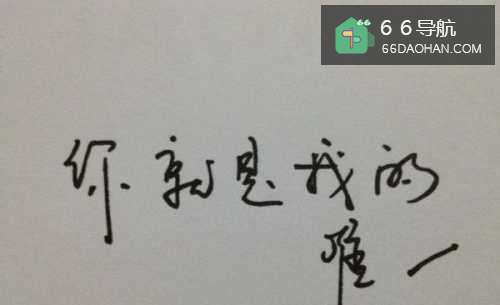 66导航
66DAOHAN.COM
你就是我的
唯一